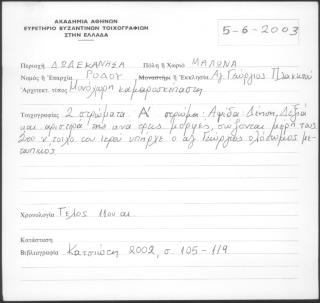 ΑΚΑΔΗΜΙΑ ΑΘΗΝΩΝ
ΕΥΡΕΤΗΡΙΟ ΒΥΖΑΝΤΙΝΩΝ ΤΟΙΧΟΓΡΑΦΙΩΝ
ΣΤΗΝ ΕΛΛΑΔΑ
5-6-2003
Περιοχή ΔΩΔΕΚΑΝΗΣΑ Πόλη ή Χωριό ΜΑΛΩΝΑ
Νομός ή Έπαρχία ΡΟΔΟΥ Μοναστήρι ή Έκκλησία Αγ Γεώργιος Πλακωτό
Άρχιτεκτ. τύπος Μονόχωρη καμαροσκέπαστη
Τοιχογραφίες 2 στρώματα. Α' στρώμα: Αψίδα: Δέηση, Δεξιά
και αριστερά της ανα τρεις μορφές, σώζονται μέρη τους
Στο ν. τοίχο του Ιερού υπήρχε ο αγ Γεώργιος ολόσωμος με-
τωπικός.
Χρονολογία Τέλος 11ου αι.
Κατάσταση
Βιβλιογραφία Κατσιώτη 2002, σ. 105-119